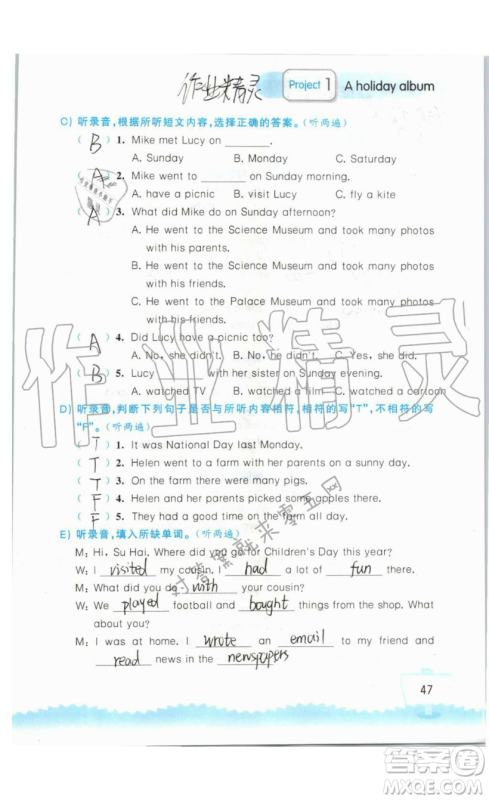 作业精灵
Project 1 A holiday album
C) 听录音,根据所听短文内容,选择正确的答案。(听两遍)
( B ) 1. Mike met Lucy on ________.
A. Sunday B. Monday C. Saturday
( A ) 2. Mike went to ________ on Sunday morning.
A. have a picnic B. visit Lucy C. fly a kite
( A ) 3. What did Mike do on Sunday afternoon?
A. He went to the Science Museum and took many photos
with his parents.
B. He went to the Science Museum and took many photos
with his friends.
C. He went to the Palace Museum and took many photos
with his friends.
( A ) 4. Did Lucy have a picnic too?
A. No, she didn't. B. No, he didn't. C. Yes, she did.
( B ) 5. Lucy ________ with her sister on Sunday evening.
A. watched TV B. watched a film C. watched a cartoon
D) 听录音,判断下列句子是否与所听内容相符,相符的写"T",不相符的写
"F"。(听两遍)
( T ) 1. It was National Day last Monday.
( T ) 2. Helen went to a farm with her parents on a sunny day.
( T ) 3. On the farm there were many pigs.
( F ) 4. Helen and her parents picked some apples there.
( F ) 5. They had a good time on the farm all day.
E) 听录音,填入所缺单词。(听两遍)
M: Hi, Su Hai. Where did you go for Children's Day this year?
W: I visited my cousin. I had a lot of fun there.
M: What did you do with your cousin?
W: We played football and bought things from the shop. What
about you?
M: I was at home. I wrote an email to my friend and
read news in the newspapers.
47
作业精灵
对答案就来零五网
答案圈
MXQE.COM